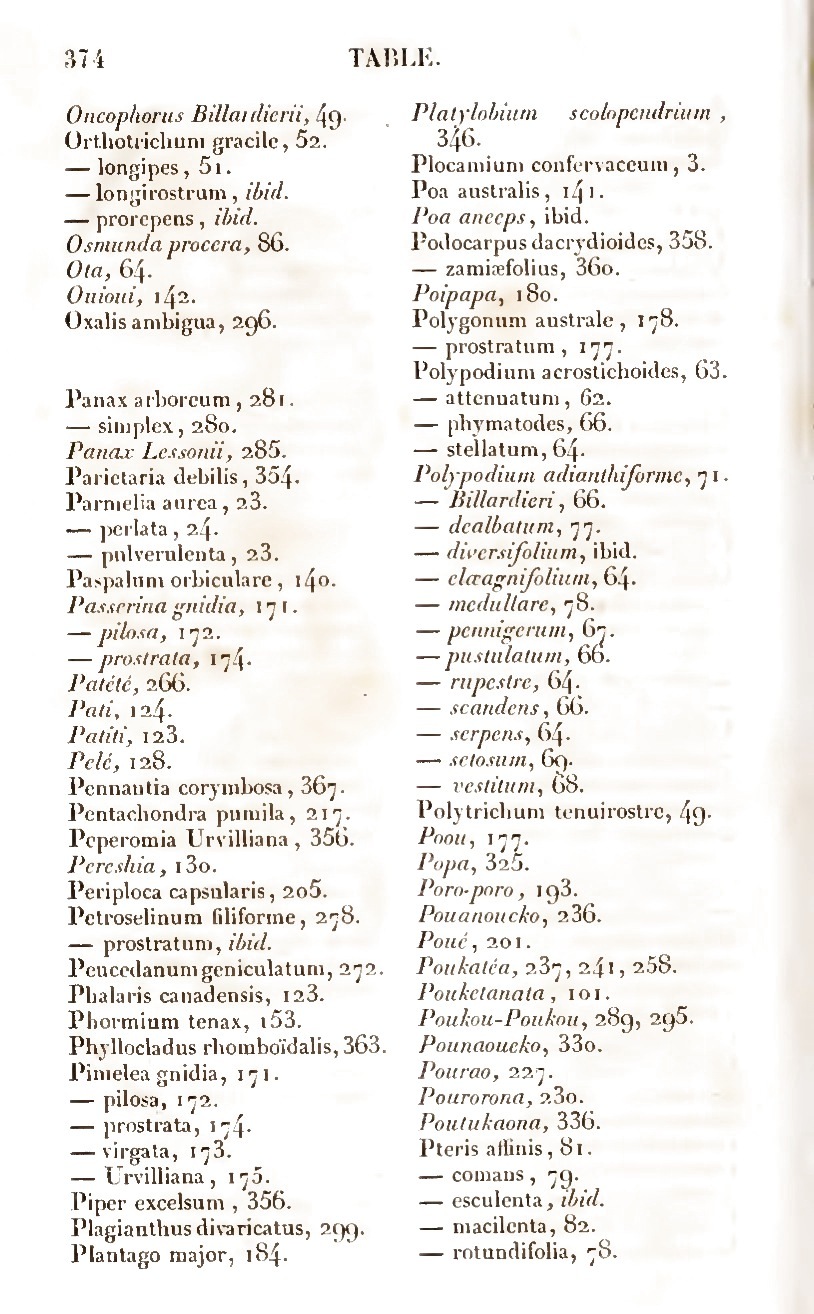 374 TABLE.
Oncophorus Billardierii, 49.
Orthotrichum gracile, 52.
— longipes, 51.
— longirostrum, ibid.
— prorepens, ibid.
Osmunda procera, 86.
Ota, 64.
Ouioui, 142.
Oxalis ambigua, 296.
Panax arboreum, 281.
— simplex, 280.
Panax Lessonii, 285.
Parietaria debilis, 354.
Parmelia aurea, 23.
— perlata, 24.
— pulverulenta, 23.
Paspalum orbiculare, 140.
Passerina gnidia, 171.
— pilosa, 172.
— prostrata, 174.
Patété, 266.
Pati, 124.
Patiti, 123.
Pelé, 128.
Pennantia corymbosa, 367.
Pentachondra pumila, 217.
Peperomia Urvilliana, 356.
Pereshia, 130.
Periploca capsularis, 205.
Petroselinum filiforme, 278.
— prostratum, ibid.
Peucedanum geniculatum, 272.
Phalaris canadensis, 123.
Phormium tenax, 153.
Phyllocladus rhomboïdalis, 363.
Pimelea gnidia, 171.
— pilosa, 172.
— prostrata, 174.
— virgata, 173.
— Urvilliana, 175.
Piper excelsum, 356.
Plagianthus divaricatus, 299.
Plantago major, 184.
Platylobium scolopendrium,
346.
Plocamium confervaceum, 3.
Poa australis, 141.
Poa anceps, ibid.
Podocarpus dacrydioides, 358.
— zamiæfolius, 360.
Poipapa, 180.
Polygonum australe, 178.
— prostratum, 177.
Polypodium acrostichoides, 63.
— attenuatum, 62.
— phymatodes, 66.
— stellatum, 64.
Polypodium adianthiforme, 71.
— Billardieri, 66.
— dealbatum, 77.
— diversifolium, ibid.
— elæagnifolium, 64.
— medullare, 78.
— pennigerum, 67.
— pustulatum, 66.
— rupestre, 64.
— scandens, 66.
— serpens, 64.
— setosum, 69.
— vestitum, 68.
Polytrichum tenuirostre, 49.
Poou, 177.
Popa, 325.
Poro-poro, 193.
Pouanoucko, 236.
Poué, 201.
Poukatéa, 237, 241, 258.
Pouketanata, 101.
Poukou-Poukou, 289, 295.
Pounaoueko, 330.
Pourao, 227.
Pourorona, 230.
Poutukaona, 336.
Pteris affinis, 81.
— comans, 79.
— esculenta, ibid.
— macilenta, 82.
— rotundifolia, 78.